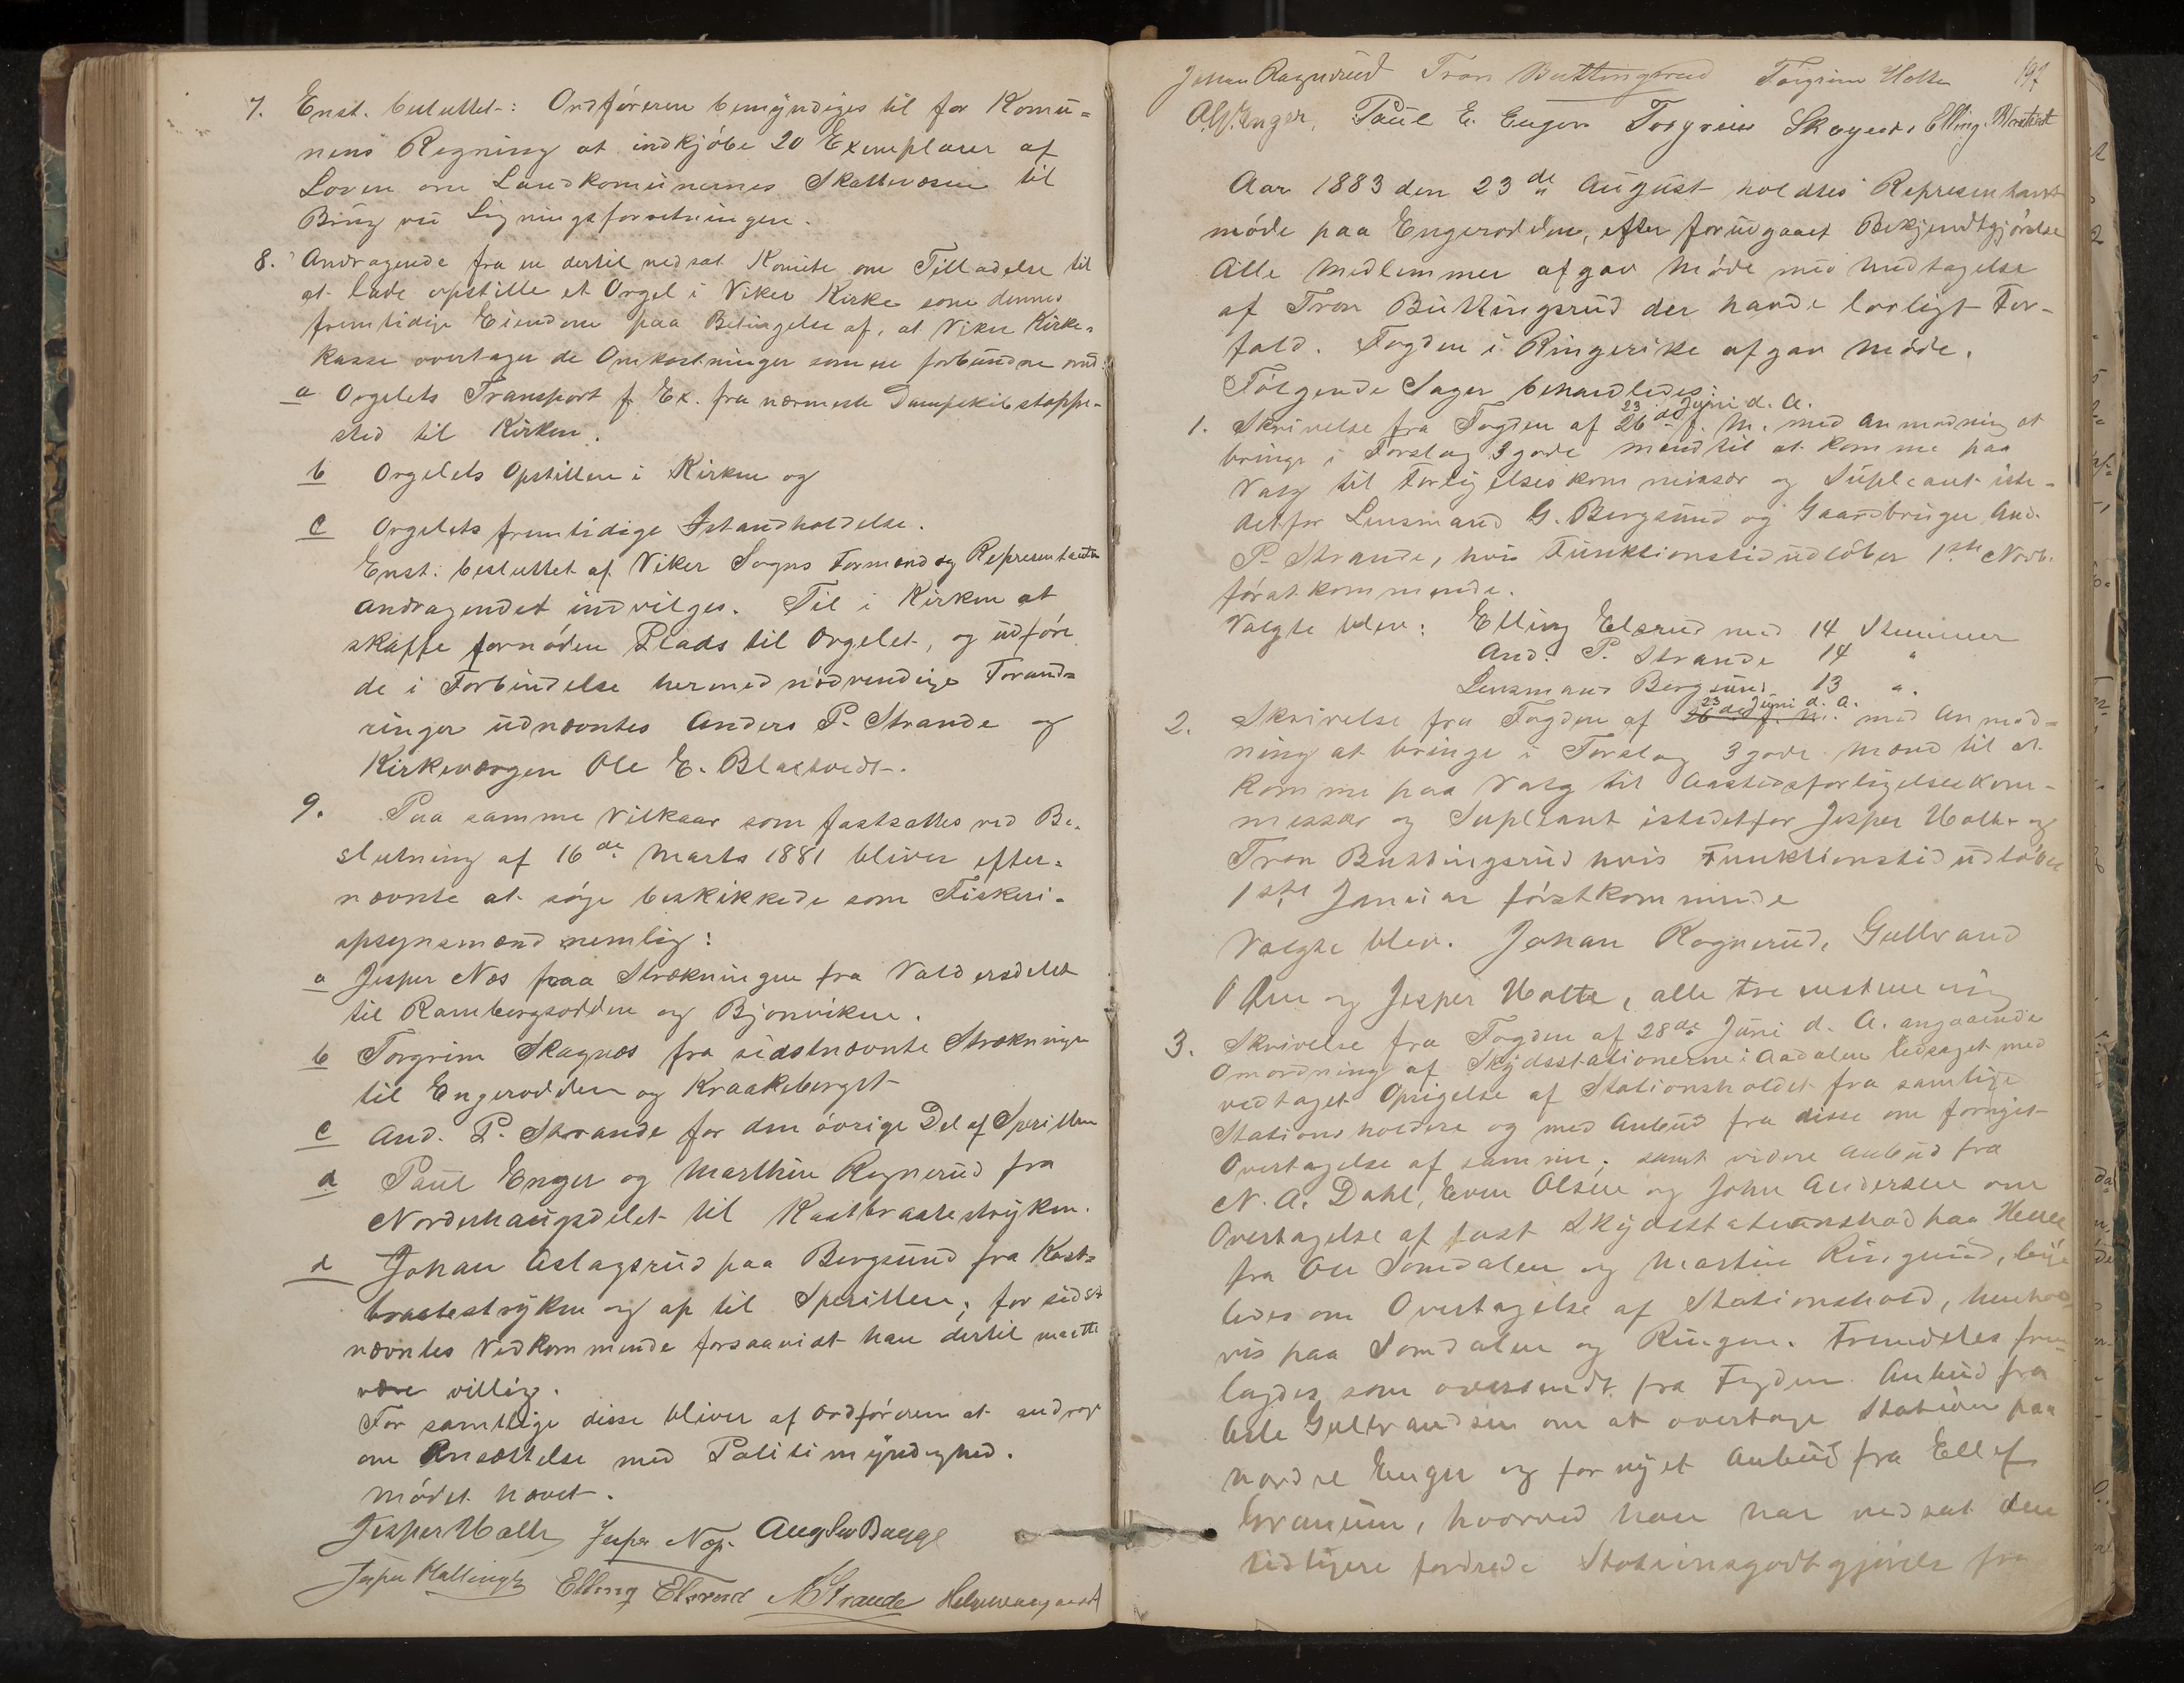 7. Enst. besluttet: Ordføreren bemyndiges til for Komu=
nens Regning at indkjøbe 20 Exemplarer af
Loven om Landkomunernes Skattevæsen til
Brug ved Ligningsforretningen.
8. Andragende fra en dertil nedsat Komite om Tilladelse til
at lade opstille et Orgel i Viker Kirke som dennes
fremtidige Eiendom paa Betingelse af, at Viker Kirke=
kasse overtager de Omkostninger som er forbundne med:
a Orgelets Transport f. Ex. fra nærmeste Dampskibstoppe-
sted til Kirken.
b Orgelets Opstillen i Kirken og
c Orgelets fremtidige Istandholdelse.
Enst. besluttet af Viker Sogns Formænd og Repræsentanter
Andragendet indvilges. Til i Kirken at
skaffe fornøden Plads til Orgelet, og udføre
de i Forbindelse hermed nødvendige Forand=
ringer udnævntes Anders P. Strande og
Kirkeværgen Ole E. Blaktvedt.
9. Paa samme Vilkaar som fastsattes ved Be=
slutning af 16de Marts 1881 bliver efter=
nævnte at søge beskikkede som Fiskeri=
opsynsmænd nemlig:
a Jesper Næs paa Strækningen fra Valdersdelet
til Rambergsodden og Bjonviken.
b Torgrim Skagnæs fra sidstnævnte Strækninger
til Engerodden og Kraakeberget
c And. P. Strande for den øvrige Del af Sperillen
d Paul Enger og Marthin Rognerud fra
Norderhaugsdelet til Kastbraatestryken.
d Johan Aslagsrud paa Bergsund fra Kast=
braatestryken og op til Sperillen; for sidst
nævntes Vedkommende forsaavidt han dertil maatte
være villig.
For samtlige disse bliver af Ordføreren at andrage
om Ansættelse med Politimyndighed.
Mødet hævet.
Jesper Holte Jesper Næs. Aug
Elling Elsrud AStrande
Johan Rognerud Tron Buttingsrud Torgrim Holte 197
Paul E. Enger Torgrim Skagnæs, Elling
Aar 1883 den 23de August holdtes Representant
møde paa Engerodden, efter forudgaaet Bekjendtgjørelse
Alle Medlemmer afgav Møde med Undtagelse
af Tron Buttingsrud der havde lovligt For-
fald. Fogden i Ringerike afgav Møde.
Følgende Sager behandledes:
23 Juni d. A.
1. Skrivelse fra Fogden af 26de f. M. med Anmodning at
bringe i Forslag 3 gode Mænd til at komme paa
Valg til Forligelseskommissær og Supleant iste-
detfor Lensmand G. Bergsund og Gaardbruger And.
P. Strande, hvis Funktionstid udløber 1ste Novb.
førstkommende.
Valgte blev: Elling Elsrud med 14 Stemmer
And. P. Strande 14 "
Lensmand Bergsund 13 "
23 Juni d. A.
2. Skrivelse fra Fogden af 26de f. M. med Anmod=
ning at bringe i Forslag 3 gode Mænd til at
komme paa Valg til Aastedsforligelseskom-
missær og Supleant istedetfor Jesper Holte og
Tron Buttingsrud hvis Funktionstid udløber
1ste Januar førstkommende
Valgte blev. Johan Rognerud, Gulbrand
og Jesper Holte, alle tre enstemmig
3. Skrivelse fra Fogden af 28de Juni d. A. angaaende
Omordning af Skydsstationerne i Aadalen ledsaget med
vedtaget Opsigelse af Stationsholdet fra samtlige
Stationsholdere og med Anbud fra disse om fornyet
Overtagelse af samme; samt videre Anbud fra
N. A. Dahl, Even Olsen og John Andersen om
Overtagelse af fast Skydsstationshold paa
fra Ole Somdalen og Martin Ringerud, lige
ledes om Overtagelse af Stationshold, henholds
vis paa Somdalen og Ringen. Fremdeles frem=
lagdes som oversendt fra Fogden Anbud fra
Asle Gulbrandsen om at overtage Station paa
nordre Enger og fornyet Anbud fra Ellef
Granum, hvorved han har nedsat den
tidligere fordrede Stationsgodtgjørelse fra